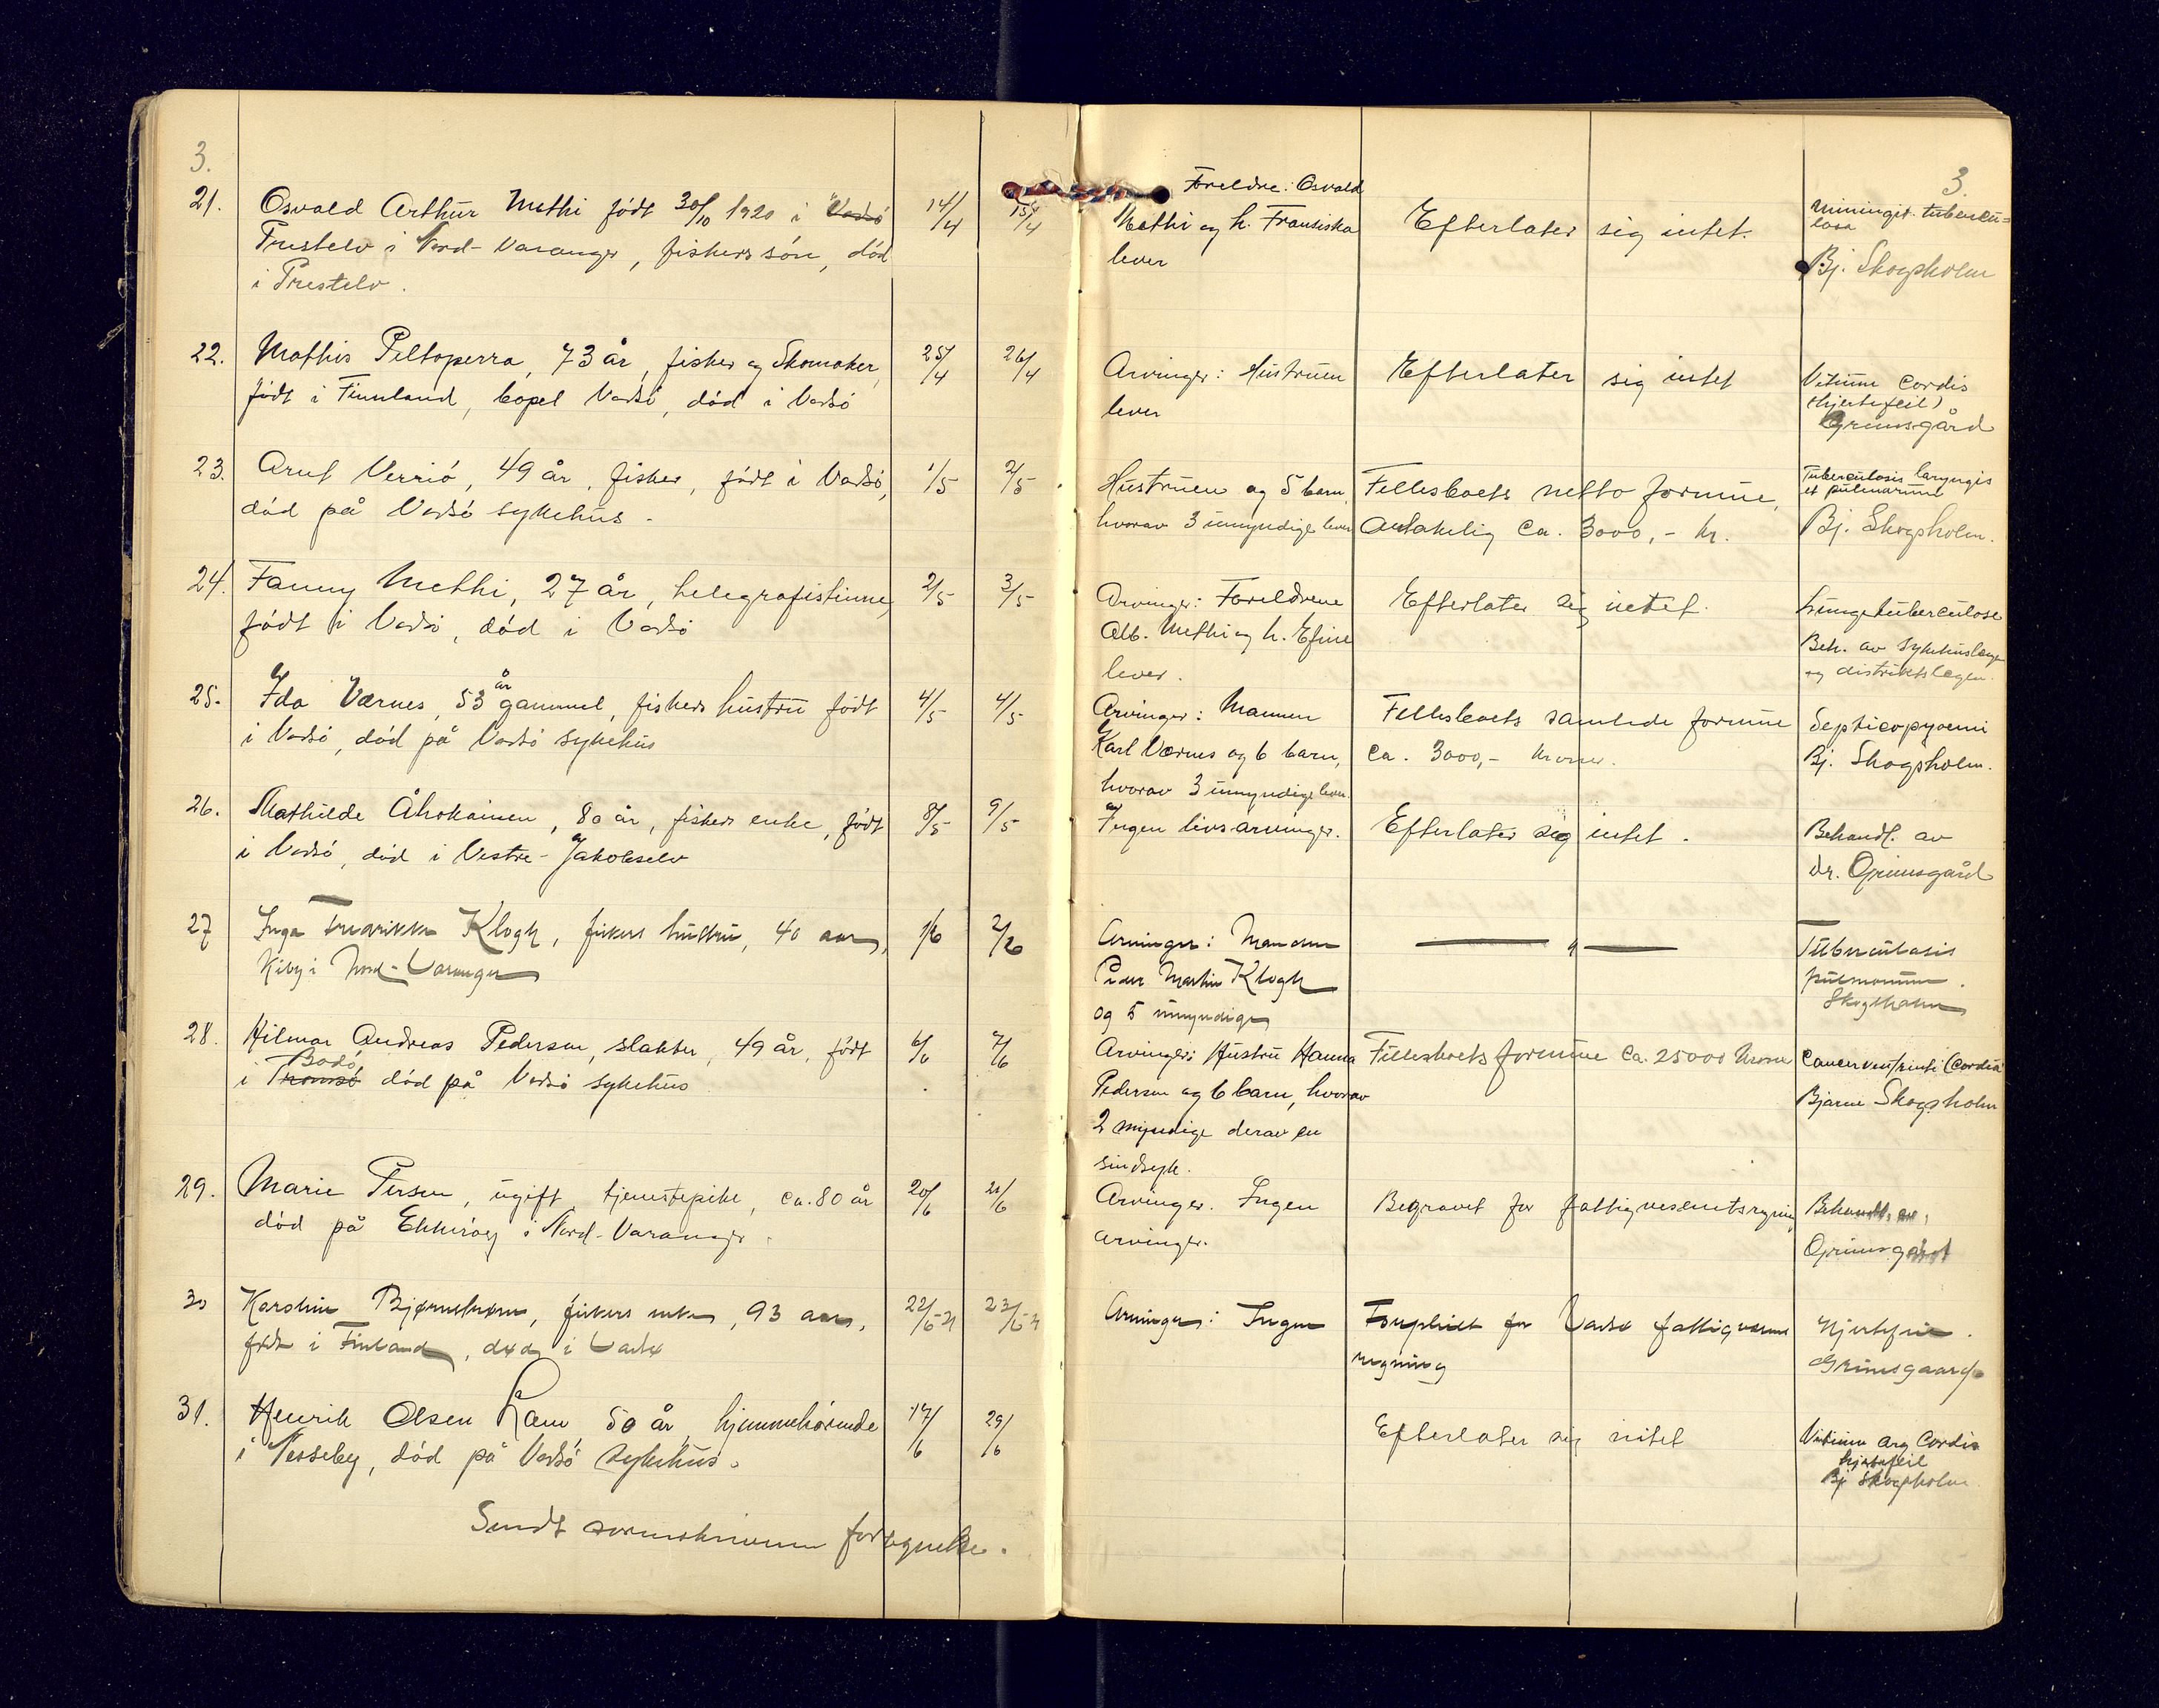 3.
3.
21. Osvald Arthur Methi født 30/10 1920 i Vadsø 14/4 15/4 Foreldre: Osvald
Prestelv i Nord-Varanger, fiskers søn, død Methi og h. Fransiska Efterlater sig intet. Miningit. tubercu=
i Prestelv. lever losa
Bj. Skogsholm
22. Mathis Peltoperra, 73 år, fisker og Skomaker, 25/4 26/4 Arvinger: Hustruen Efterlater sig intet Vitium Cordis
født i Finnland, bopel Vadsø, død i Vadsø lever (hjertefeil)
Grimsgård
23. Arut Verriö, 49 år, fisker, født i Vadsø, 1/5 2/5 Hustruen og 5 barn, Fellesboets netto formue, Tuberculosis laryngis
død på Vadsø sykehus. hvorav 3 umyndige lever Antakelig Ca. 3000,- kr. et pulmonum
Bj. Skogsholm.
24. Fanny Methi, 27 år, telegrafistinne, 2/5 3/5 Arvinger: Foreldrene Efterlater sig intet. Lungetuberculose
født i Vadsø, død i Vadsø Alb. Methi og h. Efine Beh. av sykehuslægen
lever. og distriktslegen.
25. Ida Værnes, 53 år gammel, fiskers hustru født 4/5 4/5 Arvinger: Mannen Fellesboets samlede formue Septicopyemi
i Vadsø, død på Vadsø sykehus Karl Værnes og 6 barn, ca. 3000,- kroner. Bj. Skogsholm.
hvorav 3 umyndige lever.
26. Mathilde Åhokainen, 80 år, fiskers enke, født 8/5 9/5 Ingen livsarvinger. Efterlater sig intet. Behandl. av
i Vadsø, død i Vestre-Jakobselv dr. Grimsgård
27 Inga Fredrikke Klogh, fiskers hustru, 40 aar, 1/6 2/6 Arvinger: Manden — " — Tuberculosis
Kiby i Nord-Varanger Peder Martin Klogh pulmonum.
og 5 umyndige Skogsholm
28. Hilmar Andreas Pedersen, slakter, 49 år, født 6/6 7/6 Arvinger: Hustru Hanna Fellesboets formue Ca. 25000 Kroner Cancer ventriculi (Cordia)
i Tromsø Bodø, død på Vadsø sykehus Pedersen og 6 barn, hvorav Bjarne Skogsholm
2 myndige derav en
sindsyk.
29. Marie Persen, ugift tjenestepike, ca. 80 år 20/6 21/6 Arvinger. Ingen Begravet for fattigvesenetsregning Behandl. av,
død på Ekkerøy i Nord-Varanger. arvinger. Grimsgård
30 Karoline Bjørnstrøm, fiskers enke, 93 aar, 22/6-21 23/6-21 Arvinger: Ingen Forpleiet for Vadsø fattigvæsens Hjertefeil.
født i Finland, død i Vadsø regning Grimsgaard
31. Henrik Olsen Ram 50 år, hjemmehørende 17/6 29/6 Efterlater sig intet Vitium org Cordis
i Nesseby, død på Vadsø sykehus. hjertefeil
Bj Skogsholm
Sendt sorenskriveren fortegnelse.